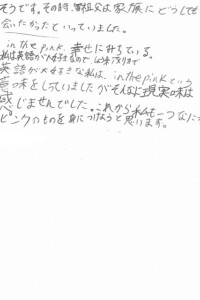 そうです。その時、曽祖父は家族にどうしても
会いたかったといっていました。
in the pink. 幸せにみちている。
私は英語が大好きなので
英語が大好きな私は、in the pinkという
意味をしっていましたがそんなに現実味は
感じませんでした。これから私も一つなにか
ピンクのものを身につけようと思います。